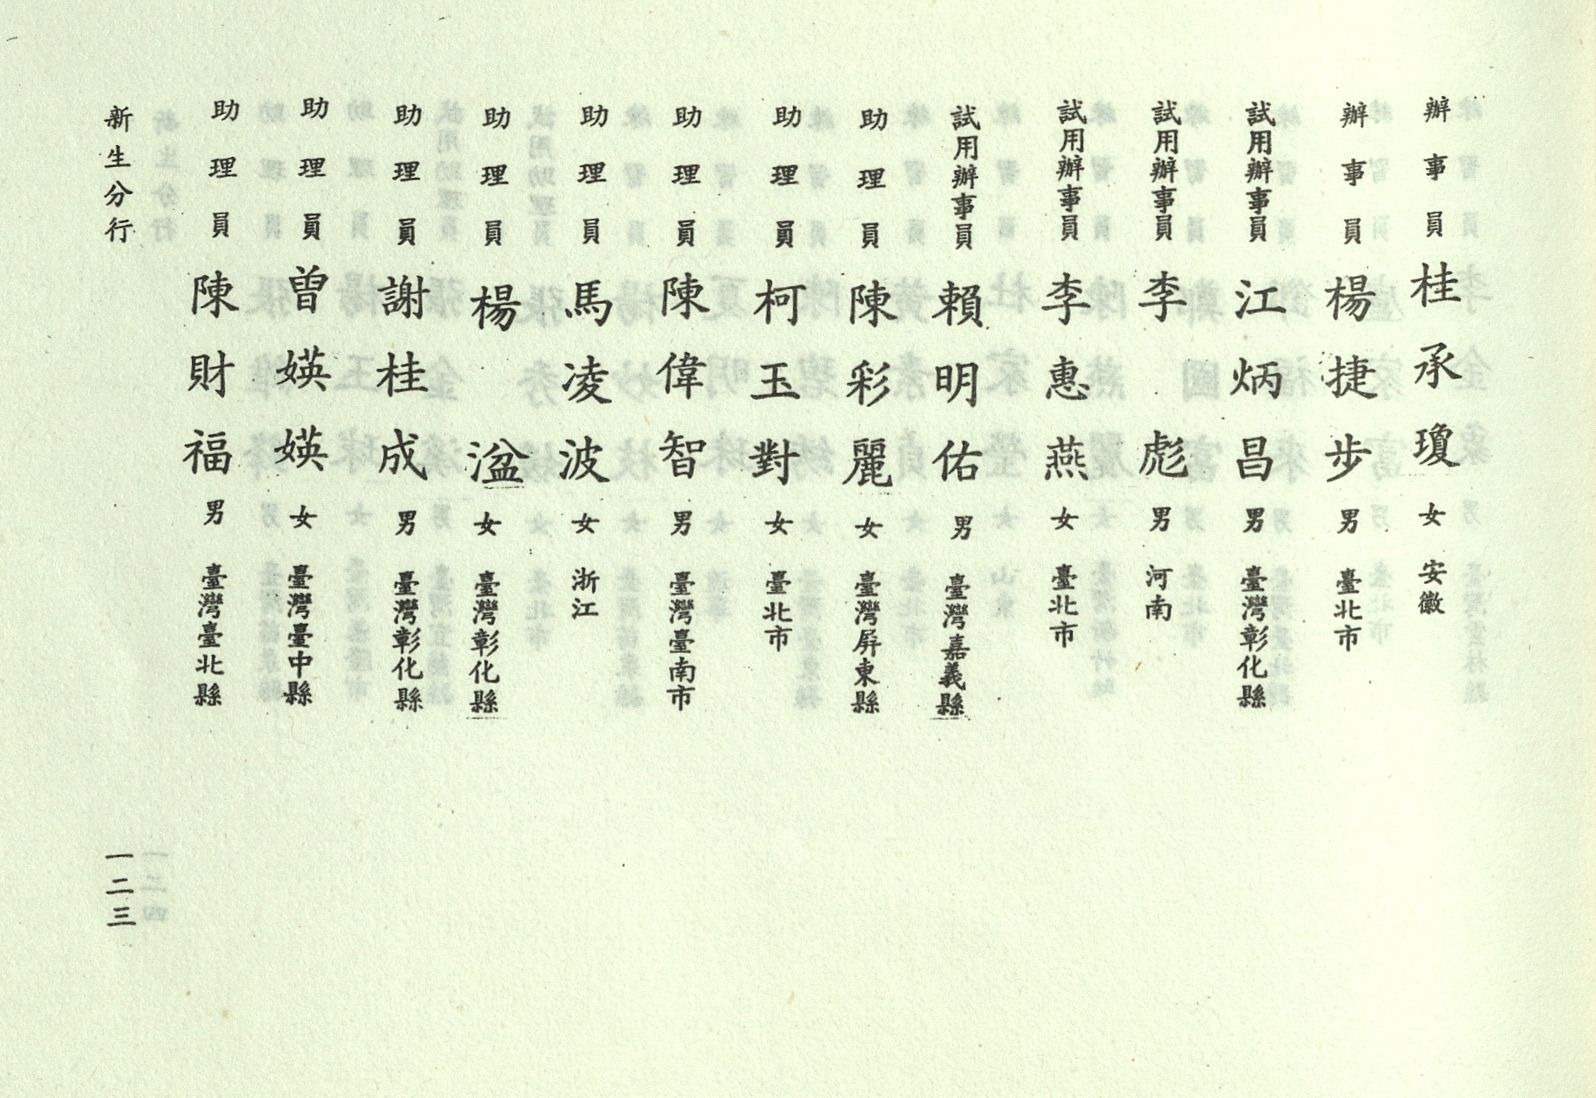 辦事員 桂承瓊 女 安徽
辦事員 楊捷步 男 臺北市
試用辦事員 江炳昌 男 臺灣彰化縣
試用辦事員 李彪 男 河南
試用辦事員 李惠燕 女 臺北市
試用辦事員 賴明佑 男 臺灣嘉義縣
助理員 陳彩麗 女 臺灣屏東縣
助理員 柯玉對 女 臺北市
助理員 陳偉智 男 臺灣臺南市
助理員 馬凌波 女 浙江
助理員 楊湓 女 臺灣彰化縣
助理員 謝桂成 男 臺灣彰化縣
助理員 曾媖媖 女 臺灣臺中縣
助理員 陳財福 男 臺灣臺北縣
新生分行
一二三